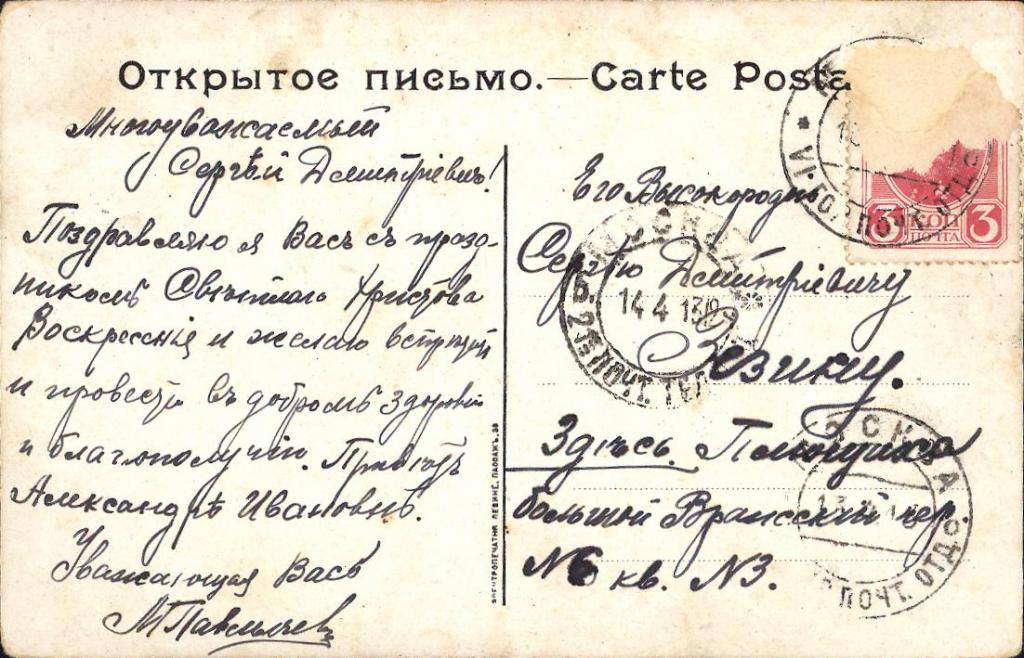 Открытое письмо.—Carte Posta
Многоуважаемый
Сергѣй Дмитріевич!
Поздравляю я Васъ съ празд-
никомъ Свѣтлаго Христова
Воскресенія и желаю встрѣтит
и провести въ добромъ здоровіи
и благополучіи. Привѣтъ
Александрѣ Ивановнѣ.
Уважающая Васъ
Его Высокородію
Сергѣю Дмитріевичу
Зезину.
Здѣсь. Плющиха
большой Вражский пер.
№6 кв. №3.
МОСКВА
14.4.13
ПОЧТ. ТЕЛ
МОСКВА
13
ПОЧТ. ОТД.
VI ГОР. ПОЧТ. ОТД.
3 КОП 3
ПОЧТА
ЭЛЕКТРОПЕЧАТНЯ ЛЕВИНЕ, ПАССАЖЪ, 38